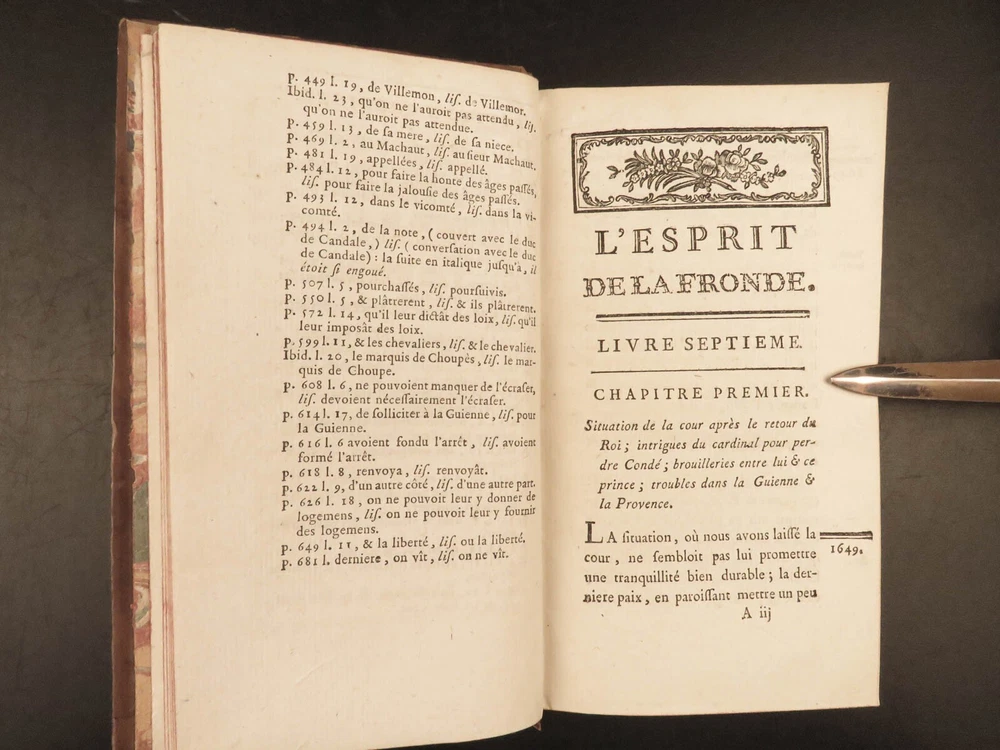 p. 449 l. 19, de Villemon, liſ. de Villemor.
Ibid. l. 23, qu'on ne l'auroit pas attendu, liſ.
qu'on ne l'auroit pas attendue.
p. 459 l. 13, de ſa mere, liſ. de ſa niece.
p. 469 l. 2, au Machaut, liſ. au ſieur Machaut.
p. 481 l. 19, appellées, liſ. appellé.
p. 484 l. 12, pour faire la honte des âges paſſés,
liſ. pour faire la jalouſie des âges paſſés.
p. 493 l. 12, dans le vicomté, liſ. dans la vi-
comté.
p. 494 l. 2, de la note, (couvert avec le duc
de Candale,) liſ. (converſation avec le duc
de Candale): la ſuite en italique juſqu'à, il
étoit ſi engoué.
p. 507 l. 5, pourchaſſés, liſ. pourſuivis.
p. 550 l. 5, & plâtrerent, liſ. & ils plâtrerent.
p. 572 l. 14, qu'il leur dictât des loix, liſ. qu'il
leur imposât des loix.
p. 599 l. 11, & les chevaliers, liſ. & le chevalier.
Ibid. l. 20, le marquis de Choupès, liſ. le mar-
quis de Choupe.
p. 608 l. 6, ne pouvoient manquer de l'écraſer,
liſ. devoient néceſſairement l'écraſer.
p. 614 l. 17, de ſolliciter à la Guienne, liſ. pour
la Guienne.
p. 616 l. 6 avoient fondu l'arrêt, liſ. avoient
formé l'arrêt.
p. 618 l. 8, renvoya, liſ. renvoyât.
p. 622 l. 9, d'un autre côté, liſ. d'une autre part.
p. 626 l. 18, on ne pouvoit leur y donner de
logemens, liſ. on ne pouvoit leur y fournir
des logemens.
p. 649 l. 11, & la liberté, liſ. ou la liberté.
p. 681 l. derniere, on vît, liſ. on ne vît.
L'ESPRIT
DE LA FRONDE.
LIVRE SEPTIEME.
CHAPITRE PREMIER.
Situation de la cour après le retour du
Roi; intrigues du cardinal pour per-
dre Condé; brouilleries entre lui & ce
prince; troubles dans la Guienne &
la Provence.
LA ſituation, où nous avons laiſſé la
cour, ne ſembloit pas lui promettre
une tranquillité bien durable; la der-
niere paix, en paroiſſant mettre un peu
A iij
1649.